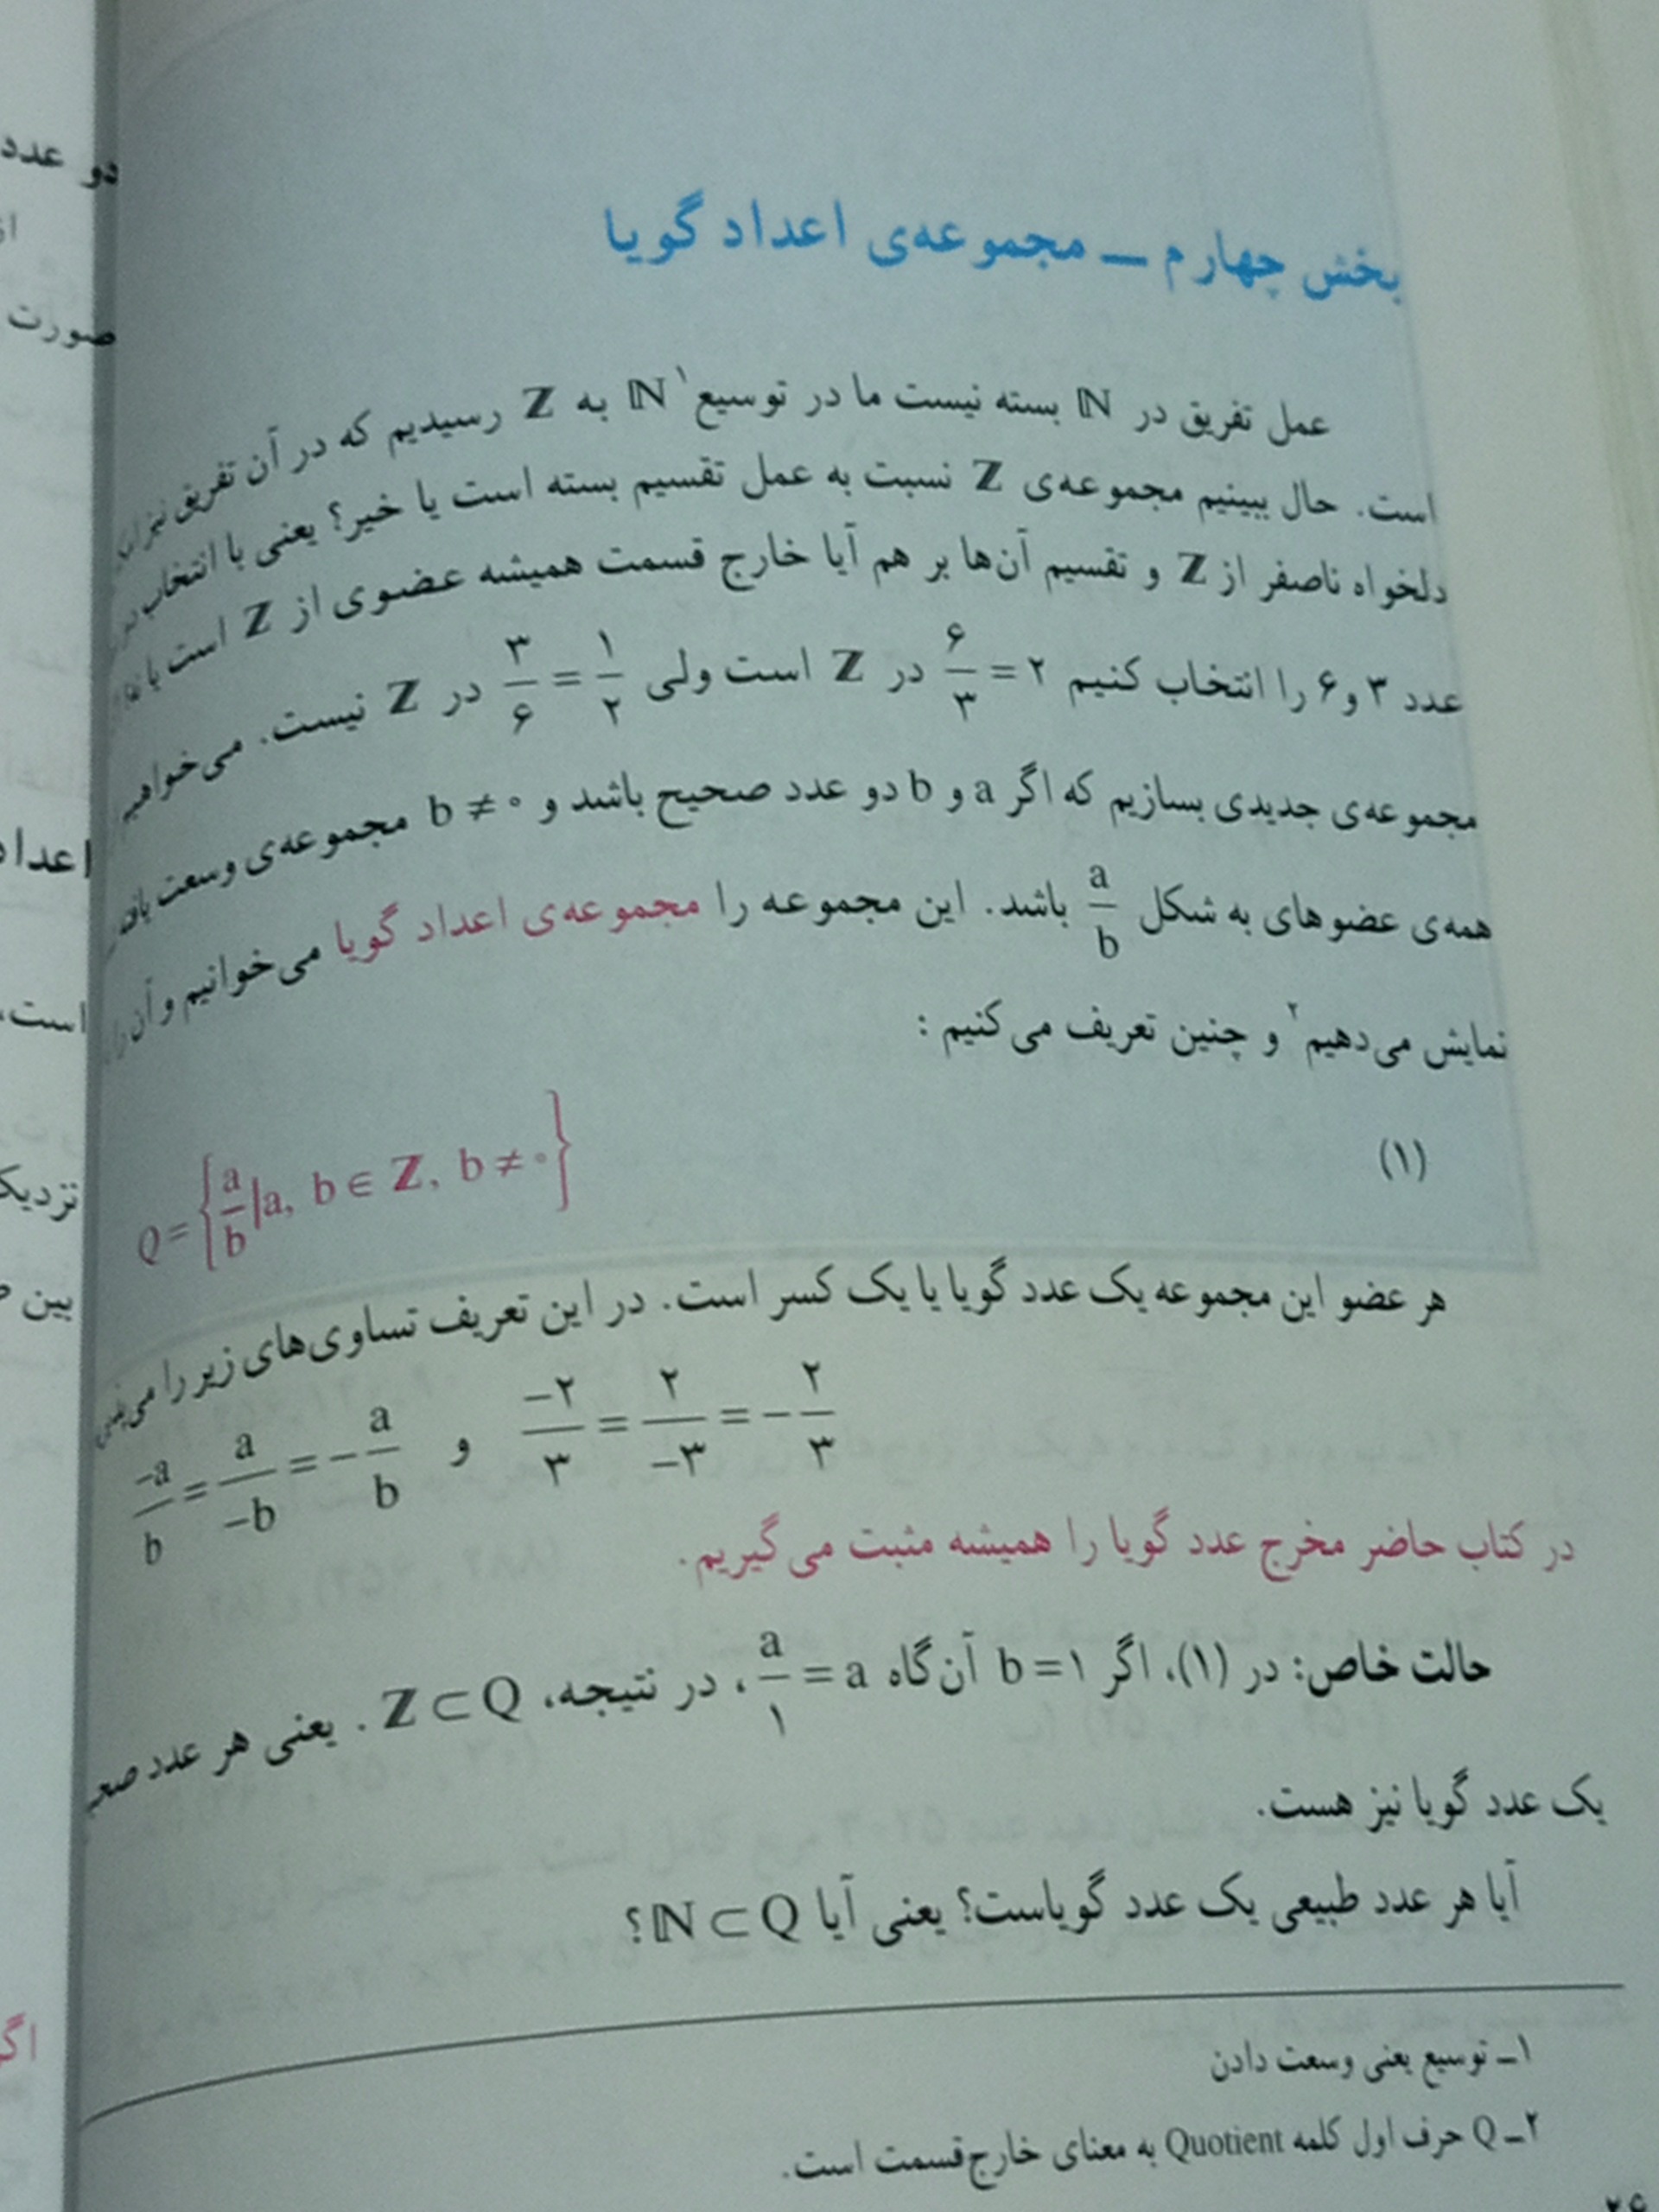 بخش چهارم — مجموعه‌ی اعداد گویا
عمل تفریق در ℕ بسته نیست ما در توسیع۱ ℕ به ℤ رسیدیم که در آن تفریق نیز
است. حال ببینیم مجموعه‌ی ℤ نسبت به عمل تقسیم بسته است یا خیر؟ یعنی با انتخاب
دلخواه ناصفر از ℤ و تقسیم آن‌ها بر هم آیا خارج قسمت همیشه عضوی از ℤ است یا
عدد ۳ و ۶ را انتخاب کنیم ۶/۳ = ۲ در ℤ است ولی ۳/۶ = ۱/۲ در ℤ نیست. می‌خواهیم
مجموعه‌ی جدیدی بسازیم که اگر a و b دو عدد صحیح باشد و b ≠ ۰ مجموعه‌ی وسعت یافته
همه‌ی عضوهای به شکل a/b باشد. این مجموعه را مجموعه‌ی اعداد گویا می‌خوانیم و آن را
نمایش می‌دهیم۲ و چنین تعریف می‌کنیم :
(۱) Q = {a/b | a, b ∈ ℤ, b ≠ ۰}
هر عضو این مجموعه یک عدد گویا یا یک کسر است. در این تعریف تساوی‌های زیر را
−a/b = a/−b = −a/b و −۲/۳ = ۲/−۳ = −۲/۳
در کتاب حاضر مخرج عدد گویا را همیشه مثبت می‌گیریم.
حالت خاص: در (۱)، اگر b = ۱ آن‌گاه a/۱ = a، در نتیجه، ℤ ⊂ Q . یعنی هر عدد
یک عدد گویا نیز هست.
آیا هر عدد طبیعی یک عدد گویاست؟ یعنی آیا ℕ ⊂ Q ؟
۱ــ توسیع یعنی وسعت دادن
۲ــ Q حرف اول کلمه Quotient به معنای خارج‌قسمت است.
دو عدد
صورت
اعداد
است،
نزدیک
بین
اگر